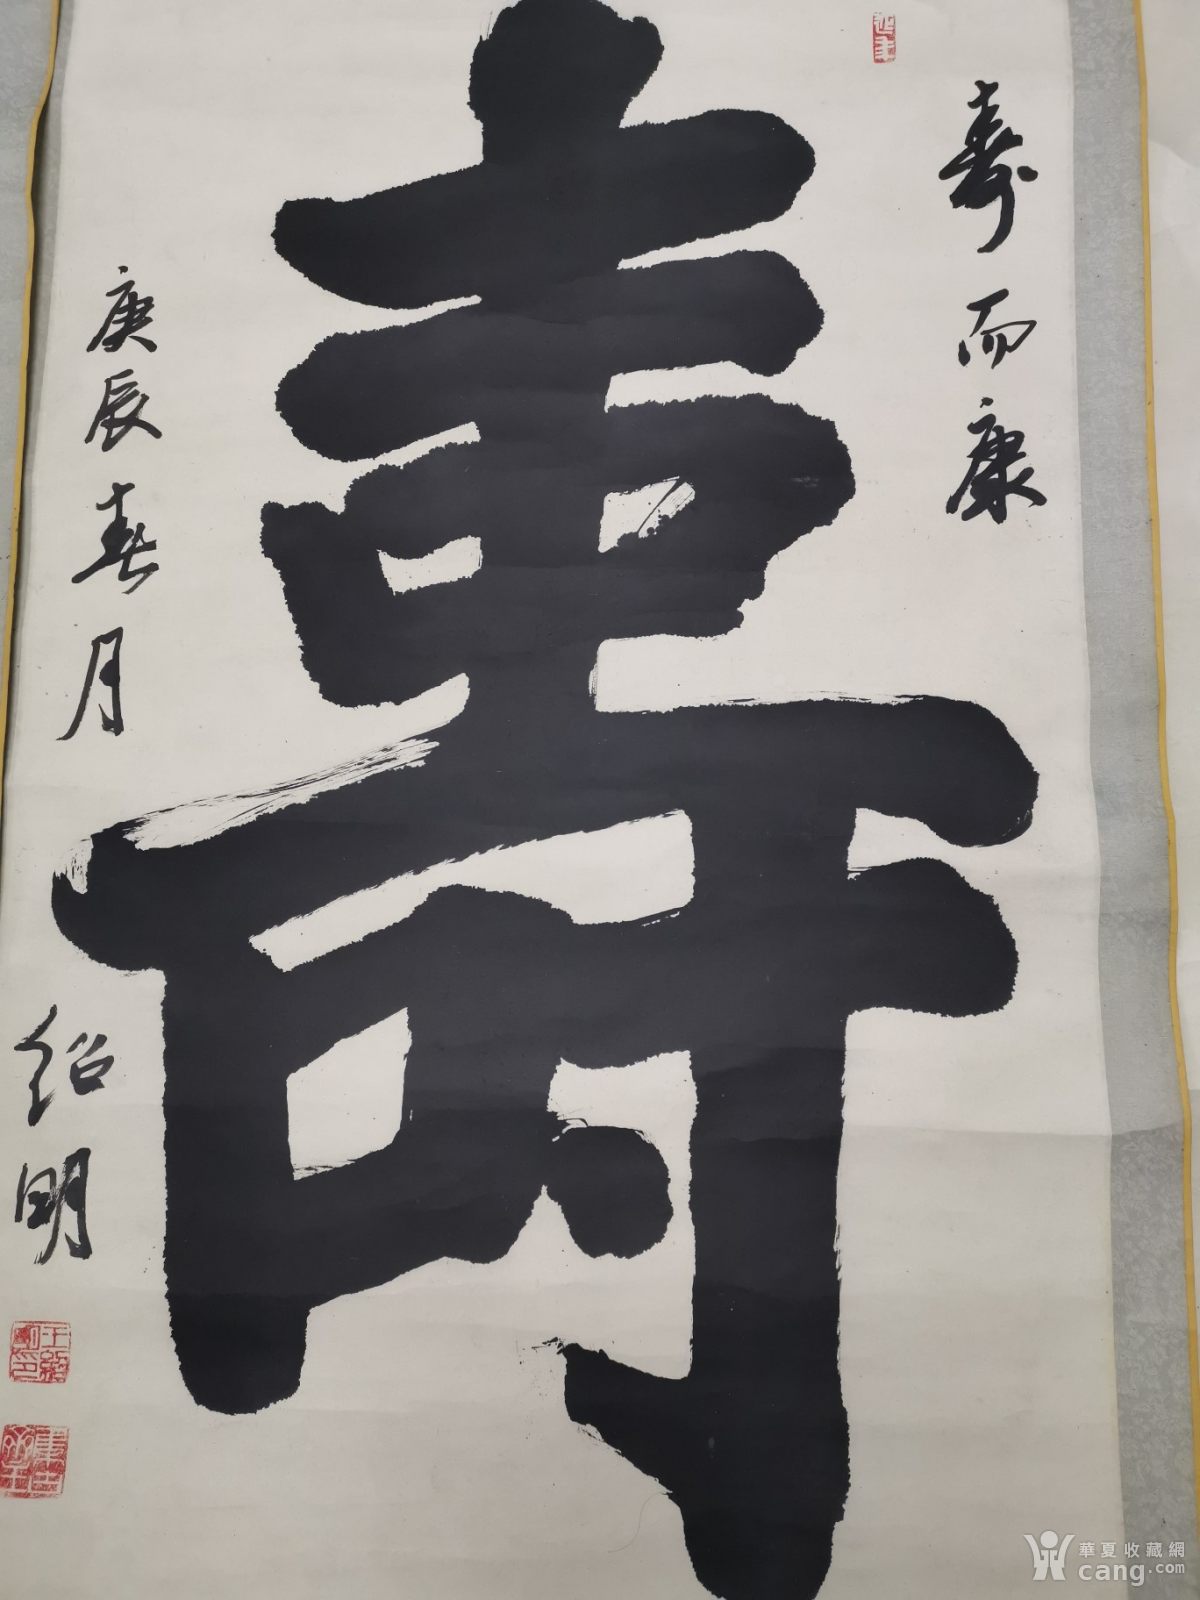 寿而康
壽
庚辰春月
绍明
延年
華夏收藏網
cang.com